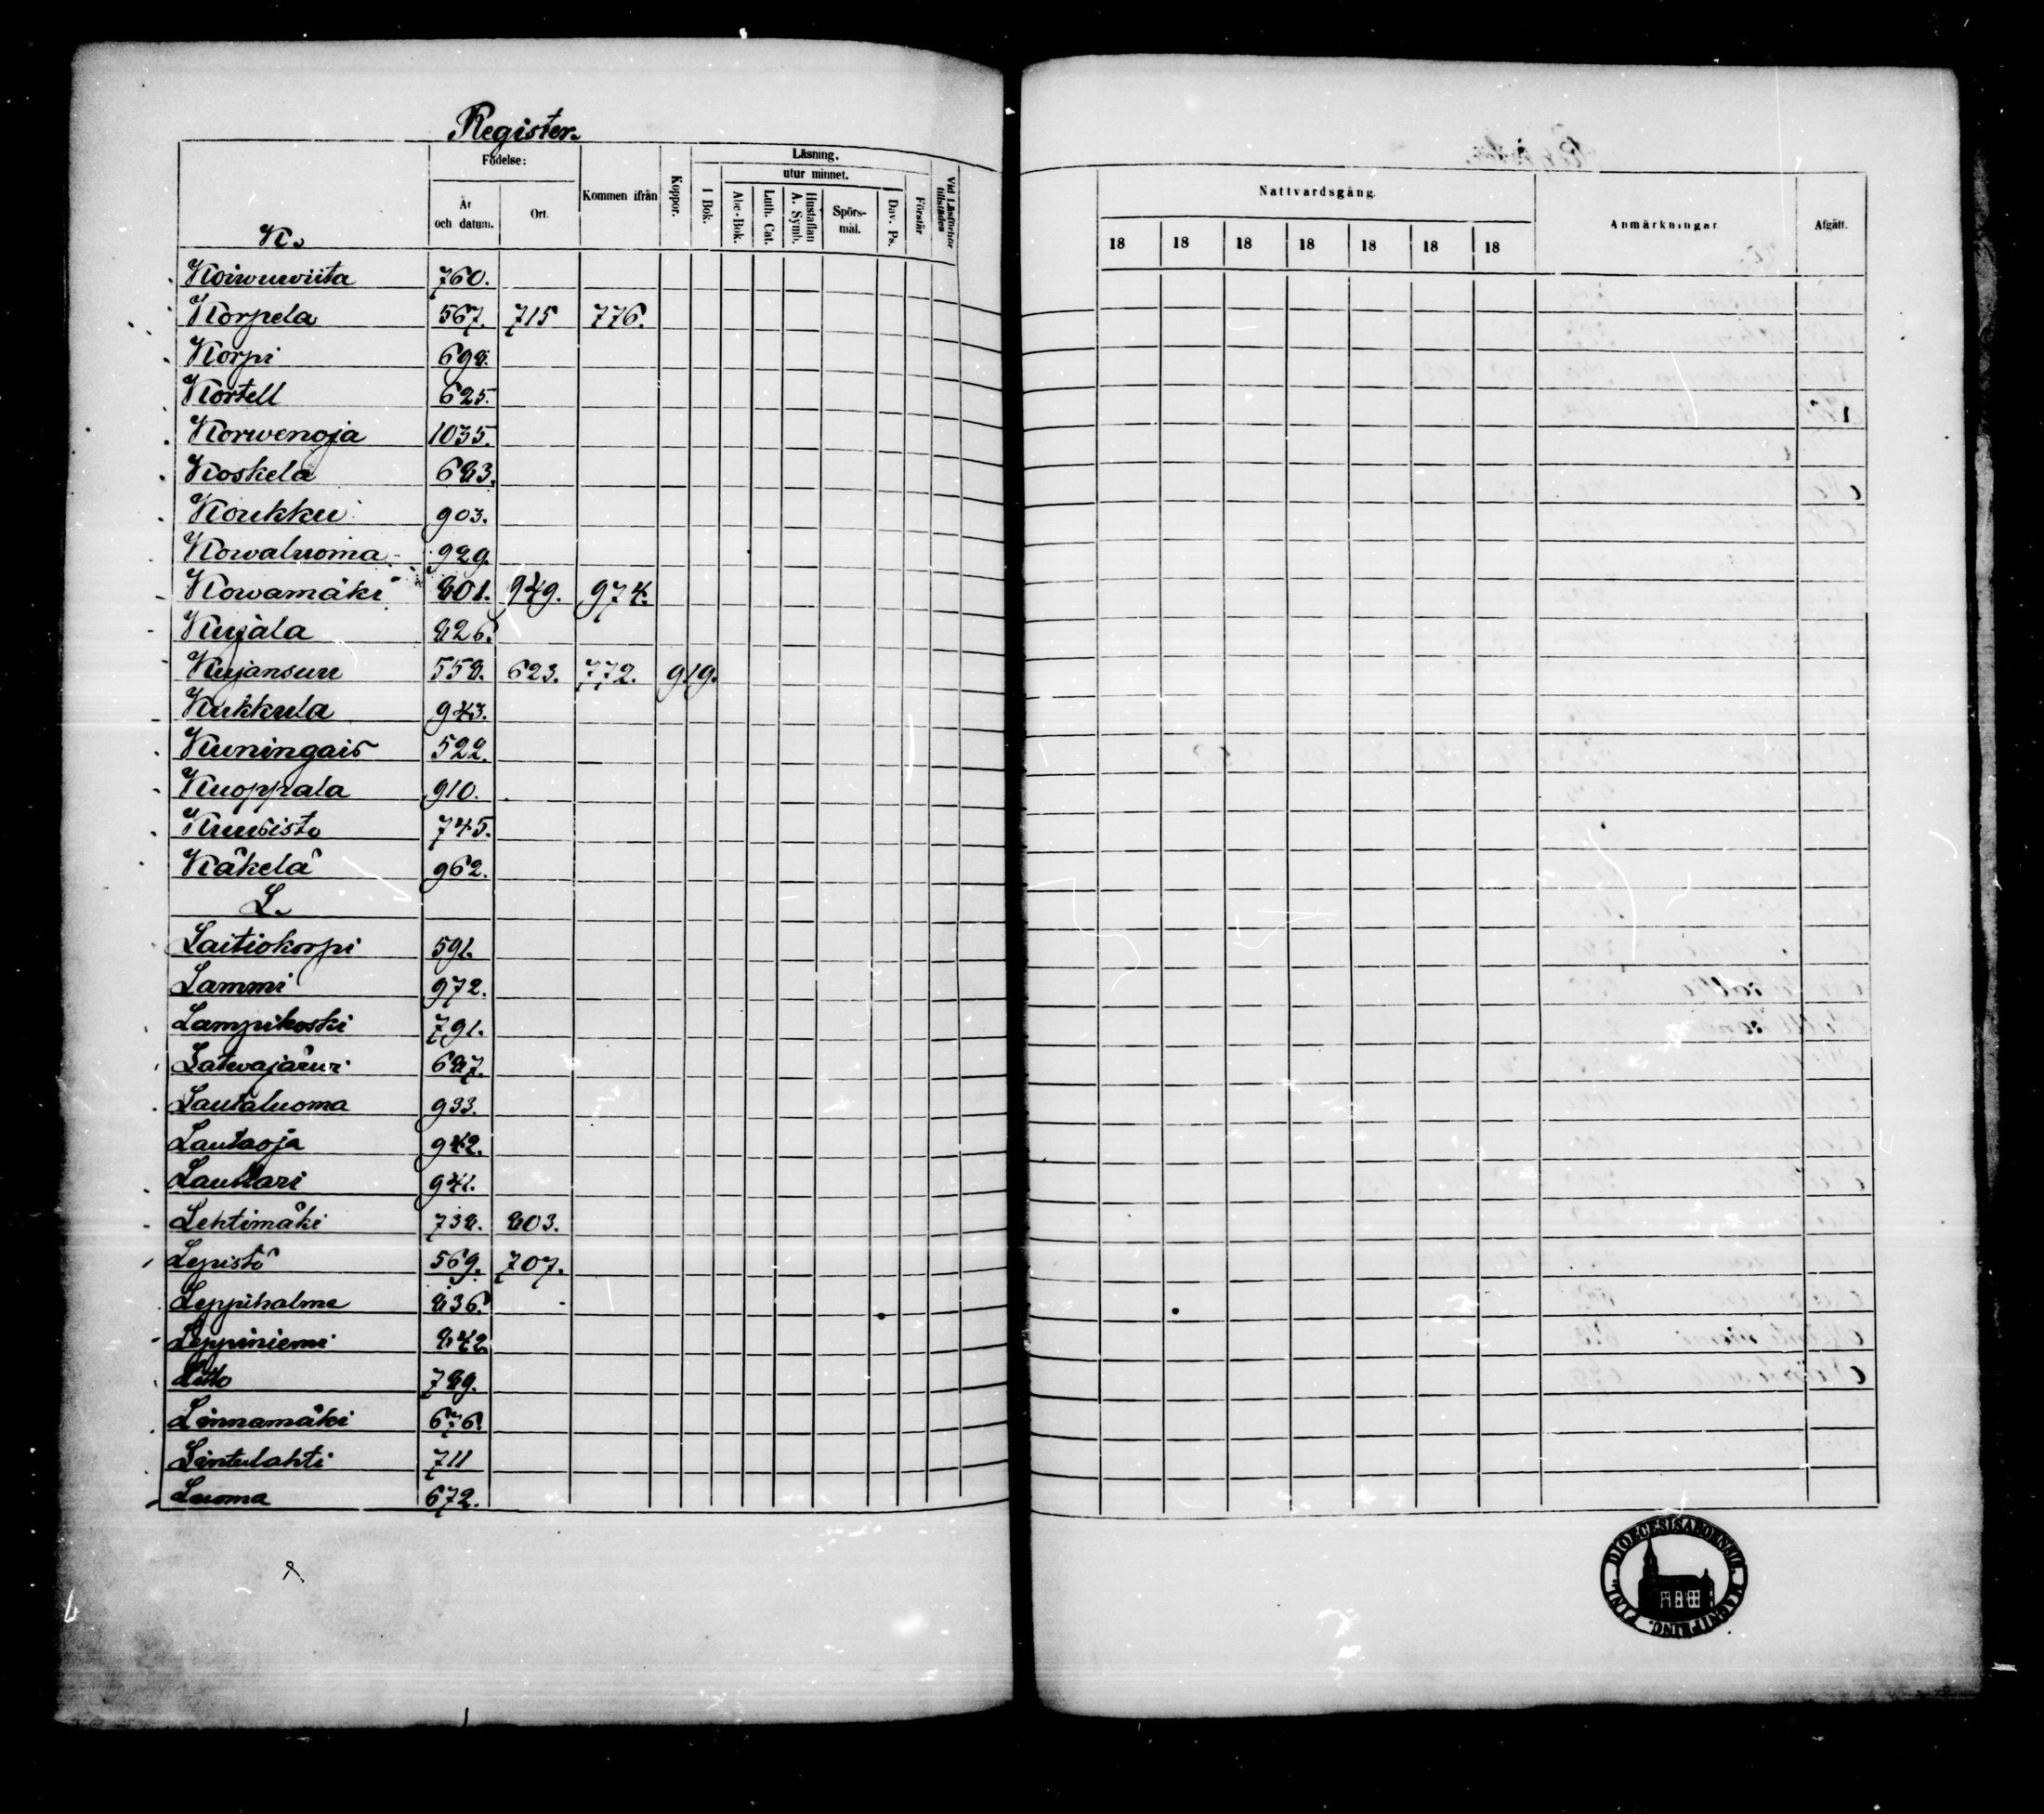 Register.
Födelse:
Kommen ifrån
Koppor.
Läsning.
utur minnet.
I Bok.
Abc-Bok.
Luth. Cat.
Hustaflan A. Symb.
Spörs-mål.
Dav. Ps.
Förstår
Vid Läsförhör tillstädes
År och datum.
Ort.
K.
Koiwuwiita 760.
Korpela 567. 715 776.
Korpi 698.
Kortell 625.
Korwenoja 1035.
Koskela 683.
Koukku 903.
Kowaluoma 929.
Kowamäki 801. 949. 974.
Kujala 826.
Kujansuu 558. 623. 772. 919.
Kukkula 943.
Kuningais 522.
Kuoppala 910.
Kuusisto 745.
Käkelä 962.
L.
Laitiokorpi 591.
Lammi 972.
Lampikoski 791.
Latwajärwi 687.
Lautaluoma 933.
Lautaoja 942.
Lauttari 941.
Lehtimäki 738. 803.
Lepistö 569. 707.
Leppihalme 836.
Leppiniemi 842
789.
Linnamäki 676.
Lintulahti 711
Luoma 672.
Nattvardsgång.
Anmärkningar
Afgått.
18 18 18 18 18 18 18
DIOECESIS ABOENSIS
FINL.